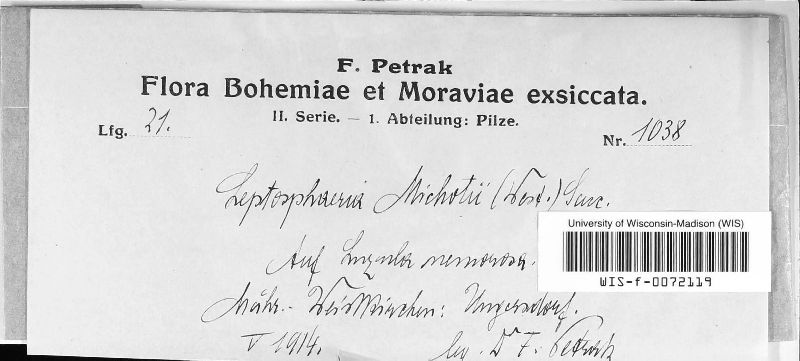 F. Petrak
Flora Bohemiae et Moraviae exsiccata.
II. Serie. — 1. Abteilung: Pilze.
Lfg. 21.
Nr. 1038
Leptosphaeria Michotii (West.) Sacc.
University of Wisconsin-Madison (WIS)
WIS-f-0072119
Auf Luzula nemorosa.
Mähr.-Weisskirchen: Ungersdorf.
V 1914.
leg. Dr F. Petrak